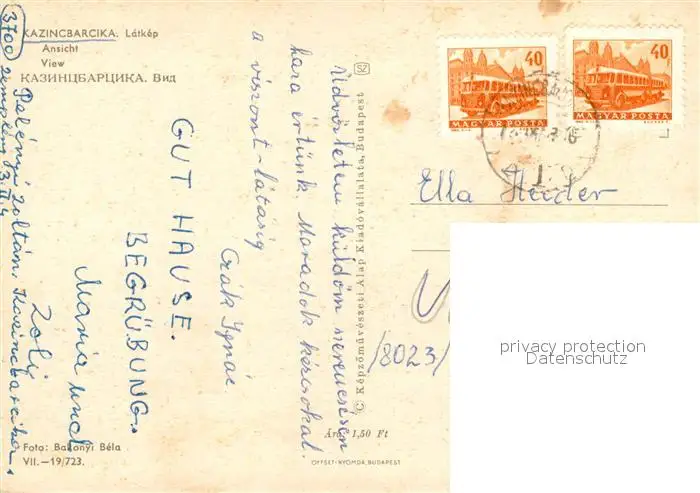 KAZINCBARCIKA. Látkép
Ansicht
View
КАЗИНЦБАРЦИКА. Вид
3700
Üdvözletem küldöm szerencsésen
haza értünk. Maradok kézcsókal
a viszont-látásig
Czák Ignác
GUT HAUSE.
BEGRÜBUNG.
Mária und
Zoli
Zoltán, Kazincbarcika.
Foto: Bakonyi Béla
VII.—19/723.
© Képzőművészeti Alap Kiadóvállalata, Budapest
SZ
Ára: 1,50 Ft
OFFSET-NYOMDA, BUDAPEST
40
MAGYAR POSTA
40
MAGYAR POSTA
Ella
/8023/
privacy protection
Datenschutz